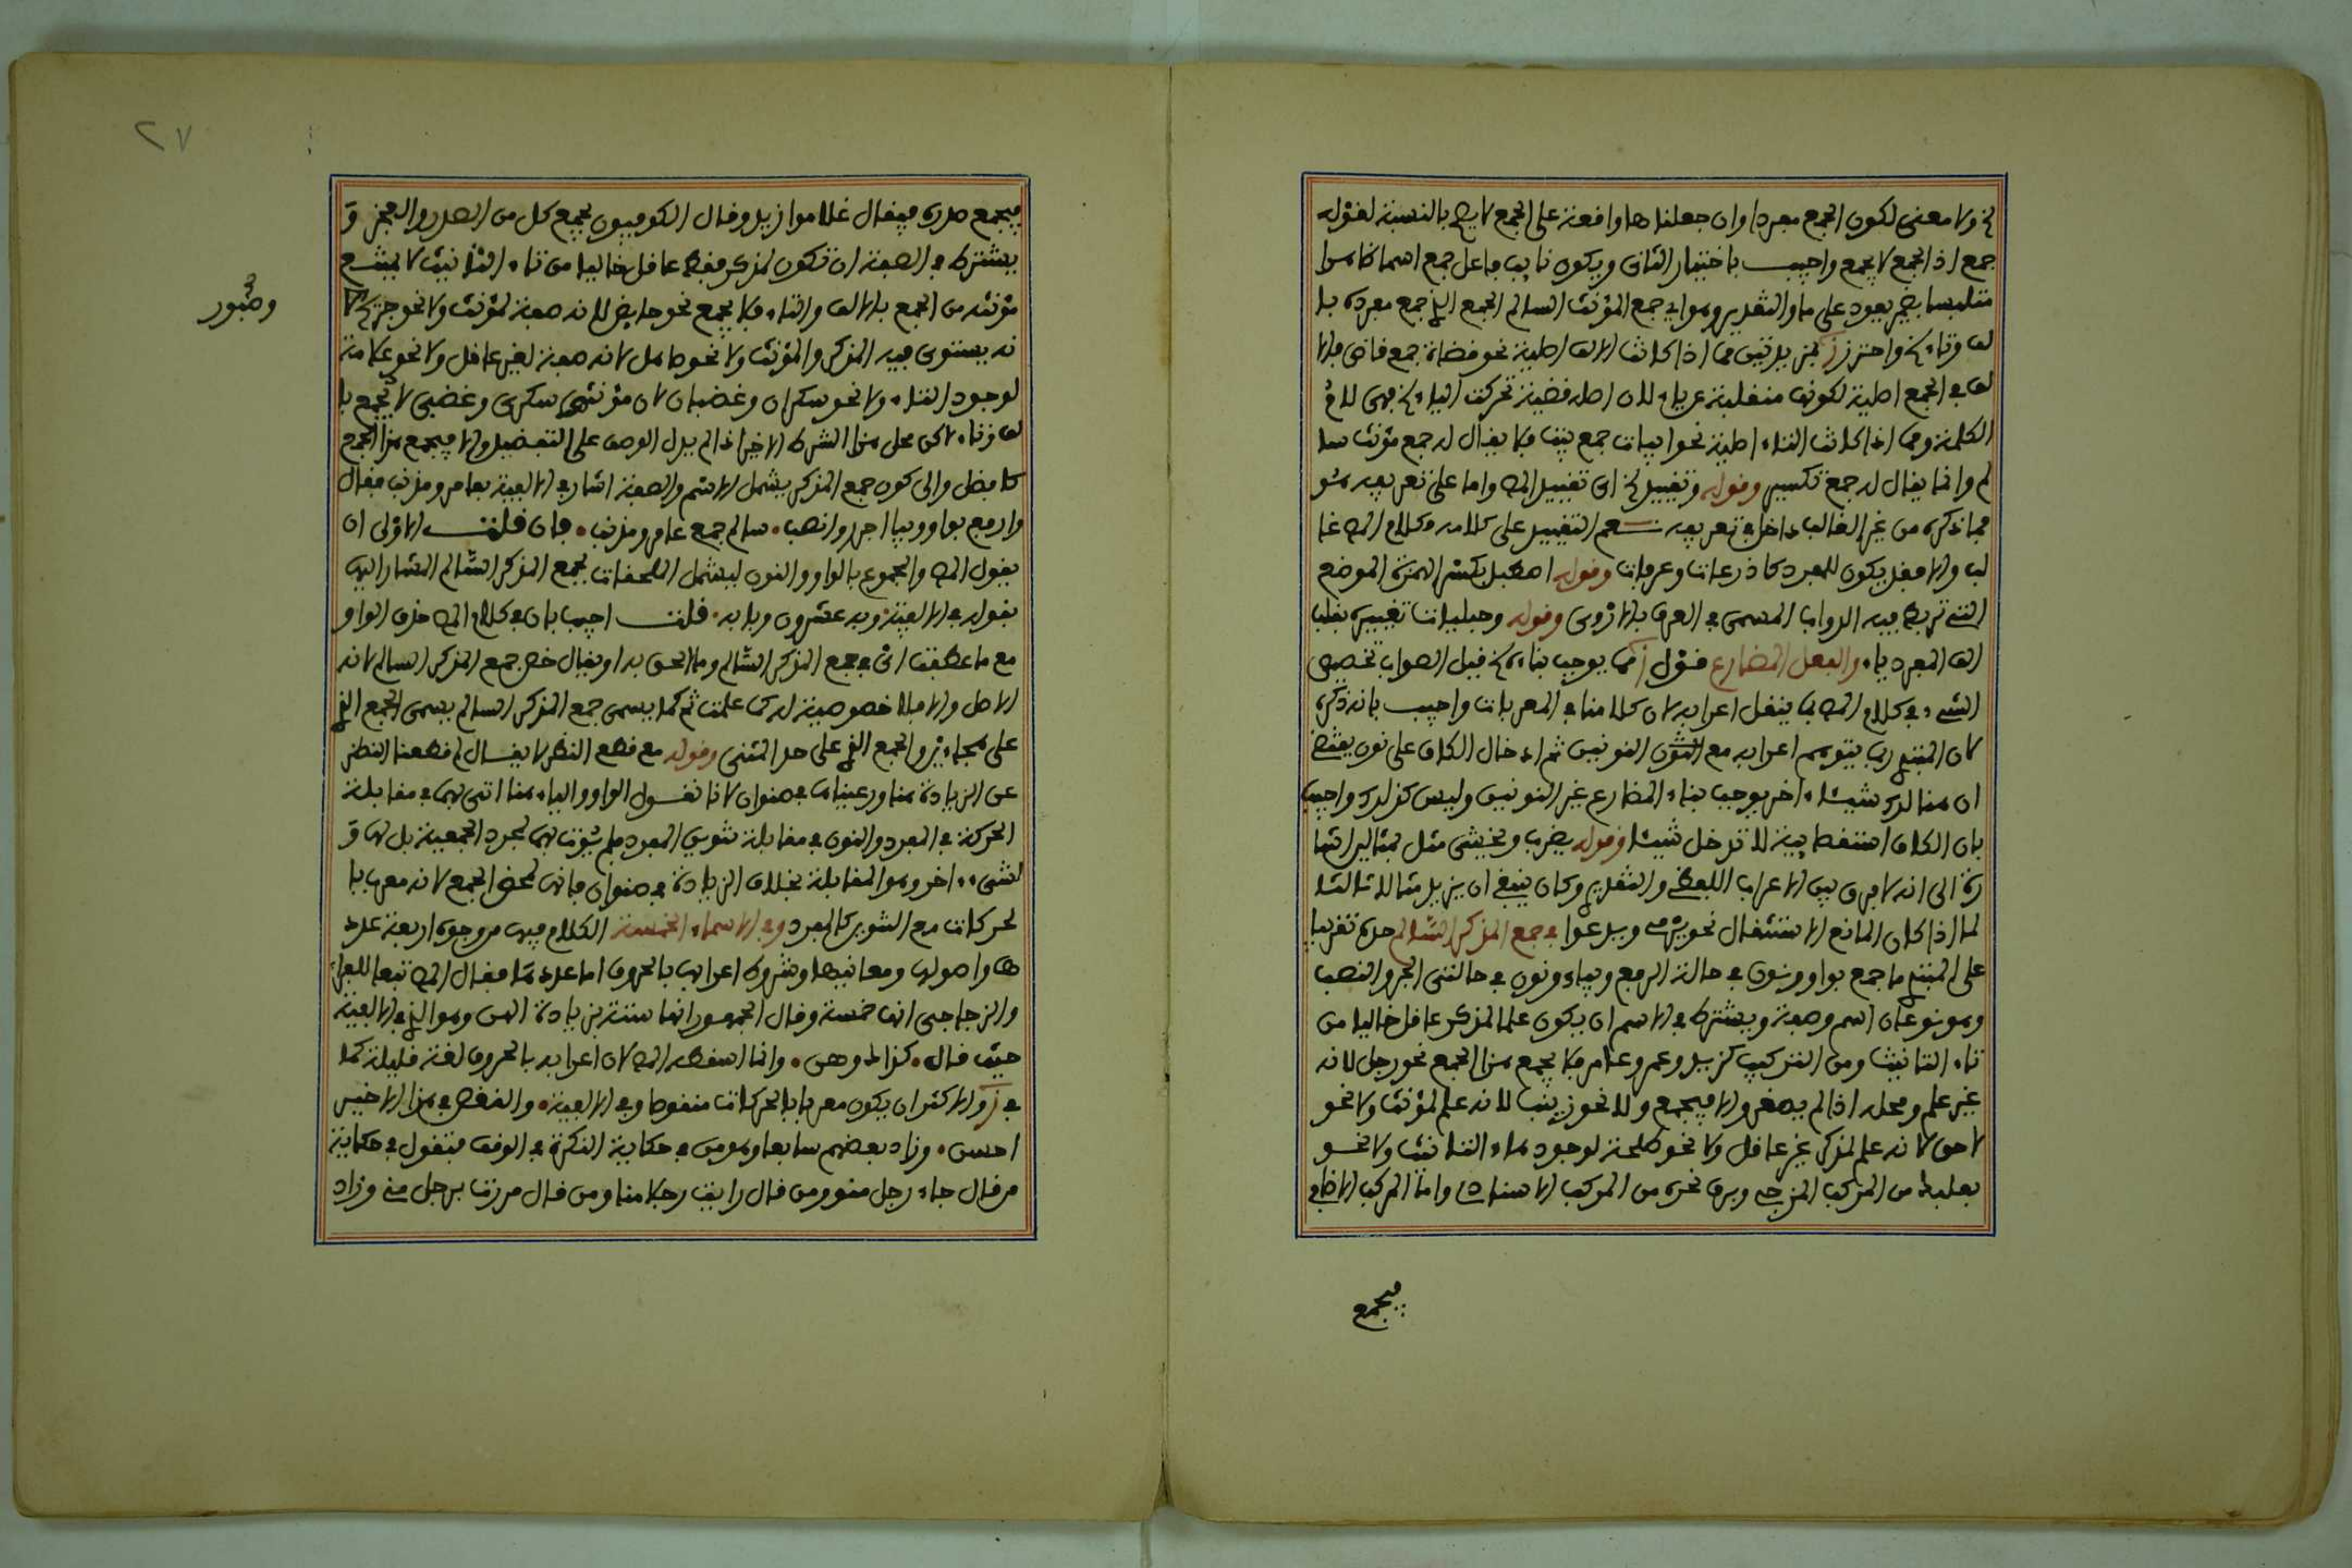 ولا معنى لكون الجمع مفردا وان جعلناها واقعة على الجمع لا يصح بالنسبة لقوله
جمع اذ الجمع لا يجمع واجيب باختيار الثانى ويكون نايب فاعل جمع اسما كاملا
متلبسا بضمير يعود على ما والتقدير وهو اي جمع المؤنث السالم الجمع الذى جمع مفرده بـا
لف وتاء واحترز بمزيدتين مما اذا كانت الالف اصلية نحو قضاة جمع قاضى فالا
لف فى الجمع اصلية لكونها منقلبة عن ياء لان اصله قضية تحركت الياء فهى لام
الكلمة ومما اذا كانت التاء اصلية نحو ابيات جمع بيت فلا يقال له جمع مؤنث سا
لم وانما يقال له جمع تكسير وقوله وتقييد اى تقييد المص واما على تعريفه هو
فما ذكره من غير الغالب داخل فى تعريفه نعم التقييد على كلامه وكلام المص غا
لب والا فقد يكون للمفرد كاذرعات وعرفات وقوله اصطبل بكسر الهمزة الموضع
التى تربط فيه الدواب المسمى فى العرف بالاروى وقوله وحبليات تغيير بقلب
الف المفرد ياء والفعل المضارع قول مما يوجب بناءه قيل الصواب تخصيص
الشىء فى كلام المص بما ينقل اعرابه لان كلامنا فى المعربات واجيب بانه ذكره
لان المبتدى ربما يتوهم اعرابه مع النون النونين ثم ادخال الكاف على نون يقتضى
ان هنالك شيئا اخر يوجب بناء المضارع غير النونين وليس كذلك واجيب
بان الكاف استقصايية لا تدخل شيئا وقوله يضرب ويخشى مثل بمثالين اشا
رة الى انه لا فرق بين الاعراب اللفظى والتقديرى وكان ينبغى ان يزيد مثالا ثالثا
لما اذا كان المانع الاستثقال نحو يرمى ويدعوا فى جمع المذكر السالم حده تقريبا
على المبتدى ما جمع بواو ونون فى حالة الرفع وبياء ونون فى حالتى الجر والنصب
وهو نوعان اسم وصفة ويشترط فى الاسم ان يكون علما لمذكر عاقل خاليا من
تاء التانيث ومن التركيب كزيد وعمرو وعامر فلا يجمع هذا الجمع نحو رجل لانه
غير علم ومحله اذا لم يصغر والا فيجمع ولا نحو زينب لانه علم لمؤنث ولا نحو
لاحق لانه علم لمذكر غير عاقل ولا نحو طلحة لوجود هاء التانيث ولا نحو
بعلبك من المركب المزجى وبرق نحره من المركب الاسنادى واما المركب الاضافى
فيجمع
فيجمع صدره فيقال غلاموا زيد وقال الكوفيون يجمع كل من الصدر والعجز و
يشترط فى الصفة ان تكون لمذكر فقط عاقل خاليا من تاء التانيث لا يمتنع
مؤنثه من الجمع بالالف والتاء فلا يجمع نحو حايض لانه صفة لمؤنث ولا نحو جريح لا
نه يستوى فيه المذكر والمؤنث ولا نحو صاهل لانه صفة لغير عاقل ولا نحو علامة
لوجود التاء ولا نحو سكران وغضبان لان مؤنثهما سكرى وغضبى لا يجمع با
لف وتاء لكن محل هذا الشرط الاخير اذا لم يدل الوصف على التفضيل والا فيجمع هذا الجمع
كافضل والى كون جمع المذكر يشمل الاسم والصفة اشار فى الالفية بعامر ومذنب فقال
وارفع بواو وبيا اجرر وانصب. سالم جمع عامر ومذنب. فان قلت الاولى ان
يقول المص والمجموع بالواو والنون ليشمل الملحقات بجمع المذكر السالم المشار اليها
بقوله فى الالفية. وبه عشرون وبابه. قلت اجيب بان فى كلام المص حذف الواو
مع ما عطفت اى فى جمع المذكر السالم وما الحق به او يقال خص جمع المذكر السالم لانه
الاصل والا فلا خصوصية له كما علمت ثم كما يسمى جمع المذكر السالم يسمى الجمع الذى
على هجاءين والجمع الذى على حد المثنى وقوله مع قطع النظر لا يقال لم قطعنا النظر
عن الزيادة هنا ورعيناها فى صنوان لانا نقول الواو والياء هنا اتى بها فى مقابلة
الحركة فى المفرد والنون فى مقابلة تنوين المفرد فلم يؤت بها لمجرد الجمعية بل لها و
لشىء اخر وهو المقابلة بخلاف الزيادة فى صنوان فانها لمحض الجمع لانه معرب با
لحركات مع التنوين كالمفرد وفى الاسماء الخمسة الكلام فيها من وجوه اربعة عدد
ها واصولها ومعانيها وشروط اعرابها بالحروف اما عددها فقال المص تبعا للفراء
والزجاجى انها خمسة وقال الجمهور انها ستة بزيادة الهن وهو الذى فى الالفية
حيث قال. كذاك وهن. وانما اسقطه المص لان اعرابه بالحروف لغة قليلة كما
فى والاكثر ان يكون معربا بالحركات منقوصا وفى الالفية. والنقص فى هذا الاخير
احسن. وزاد بعضهم سابعا وهو من فى حكاية النكرة فى الوقف فتقول فى حكاية
من قال جاء رجل منو ومن قال رايت رجلا منا ومن قال مررت برجل منى وزاد
وصبور
٢٧